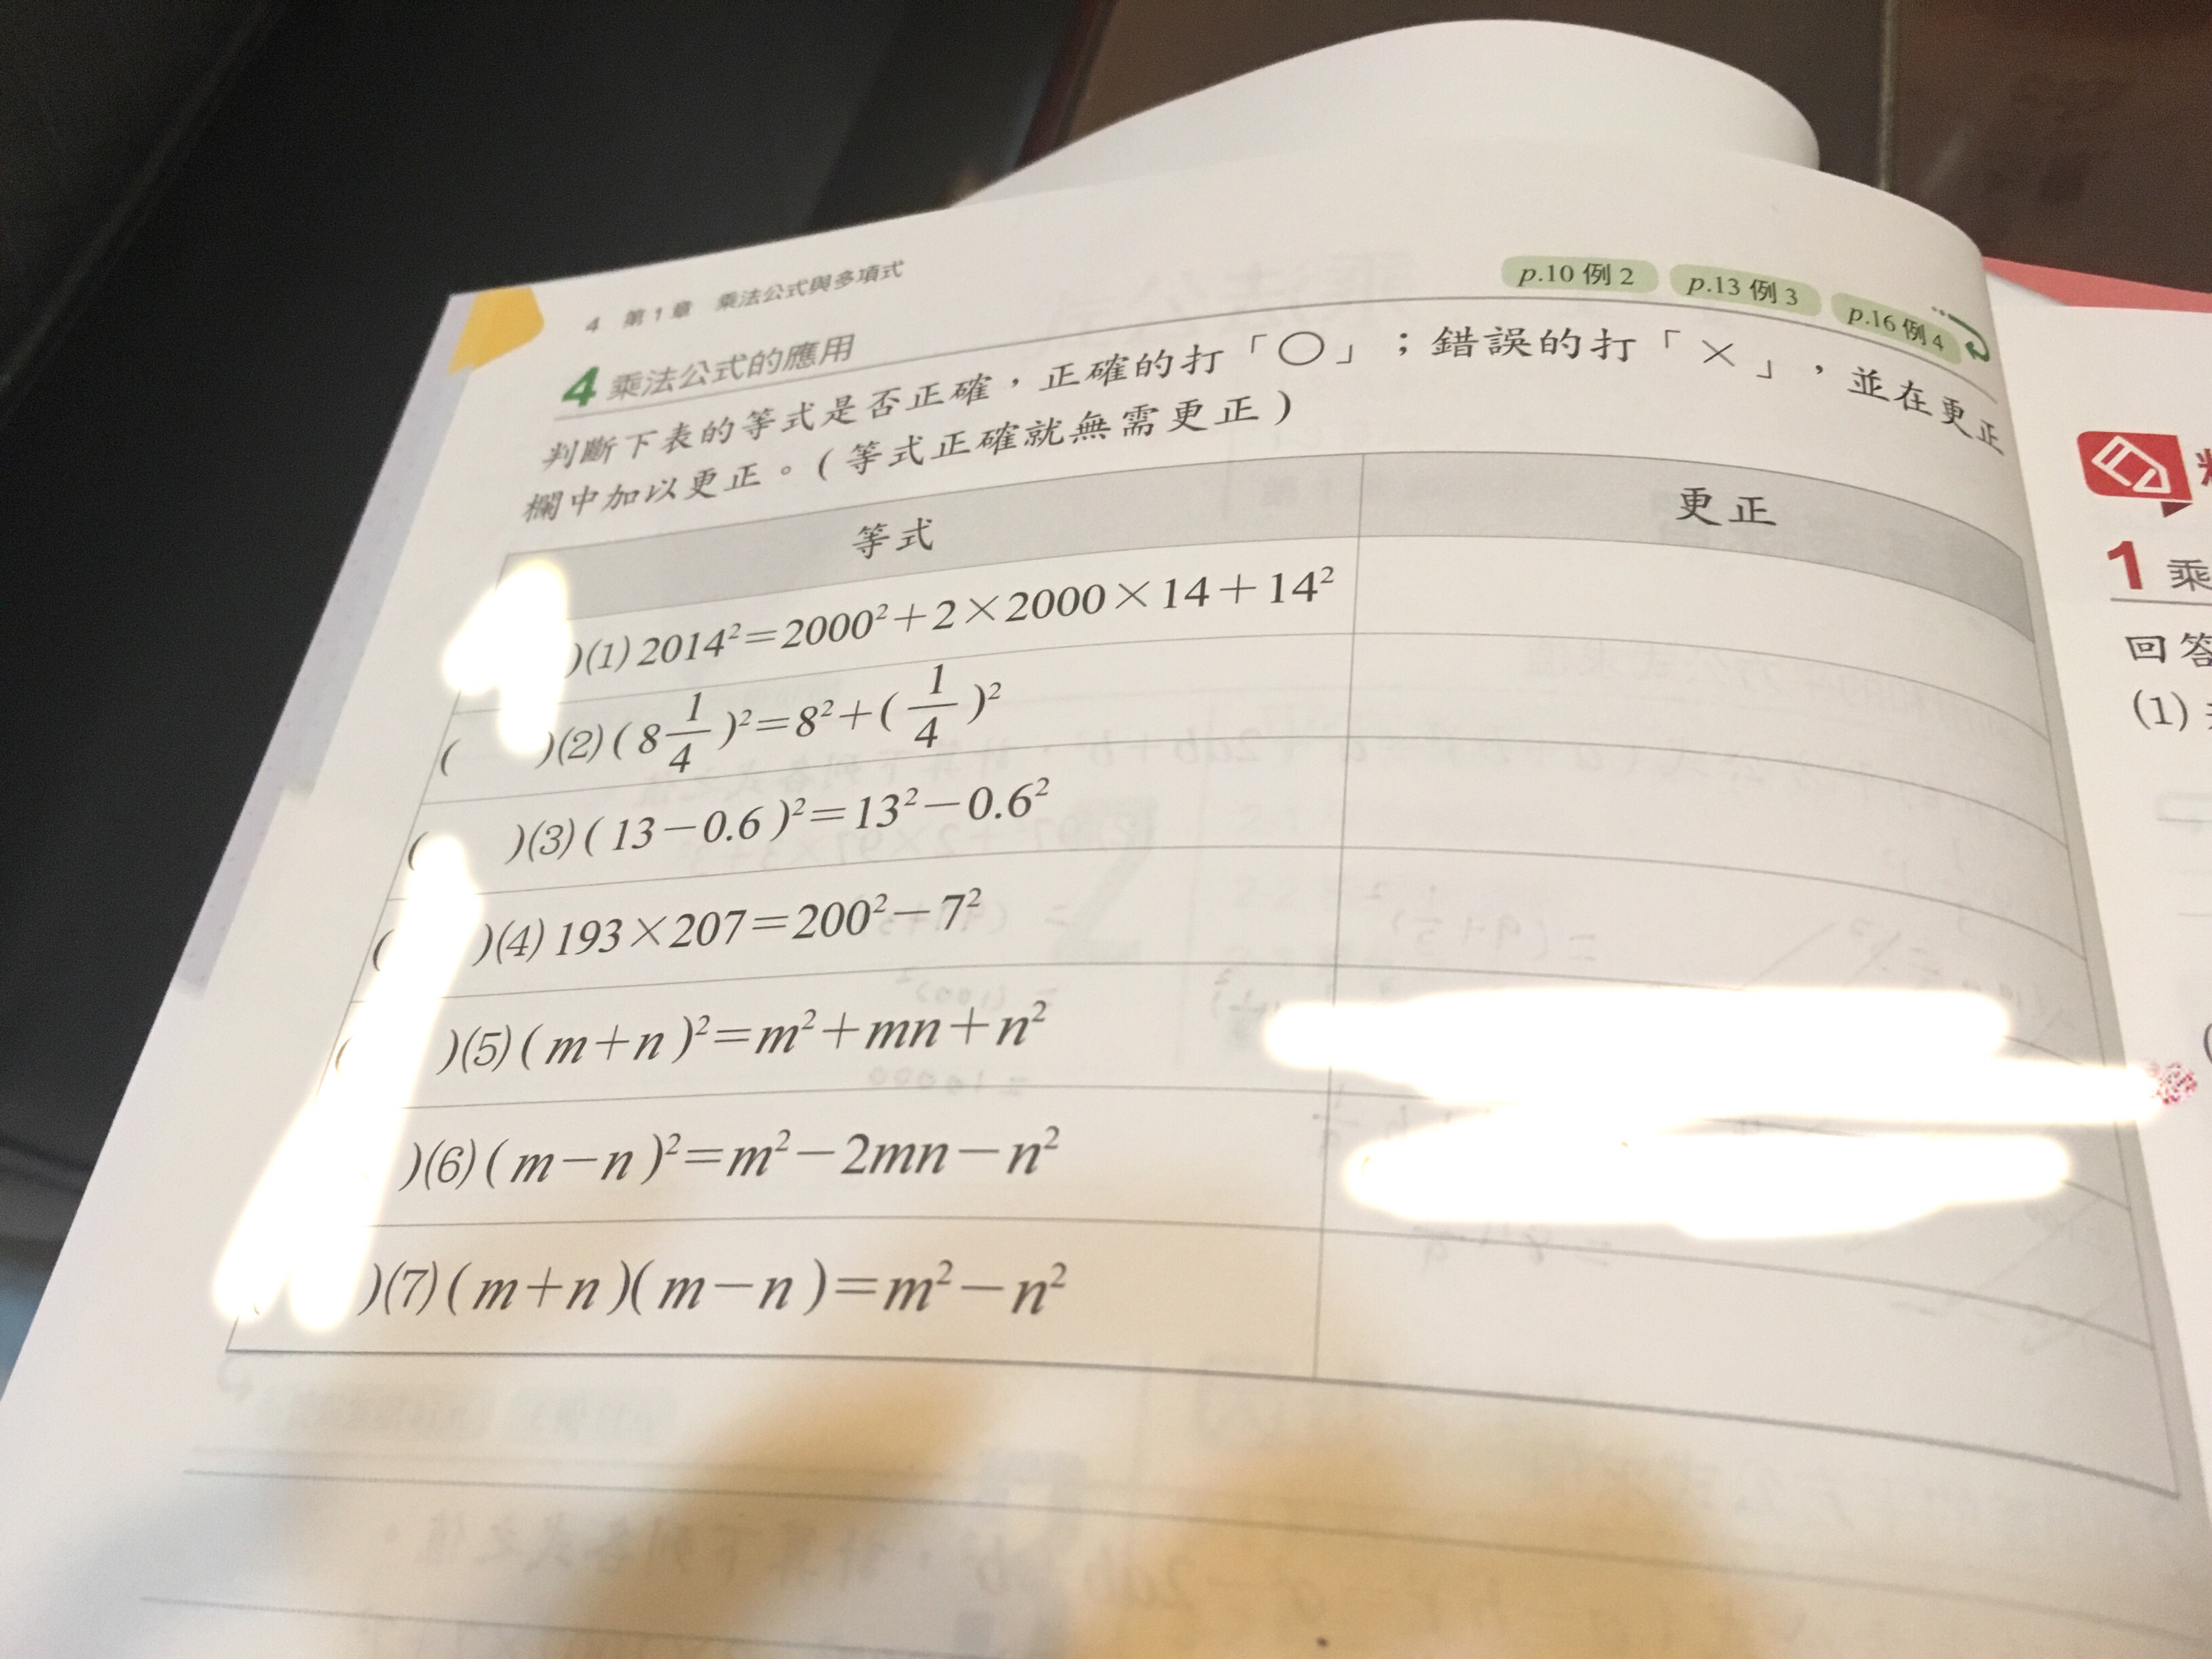 4 第1章 乘法公式與多項式
p.10 例 2 p.13 例 3 p.16 例 4
4 乘法公式的應用
判斷下表的等式是否正確，正確的打「○」；錯誤的打「×」，並在更正
欄中加以更正。(等式正確就無需更正)
等式 更正
)(1) 2014²=2000²+2×2000×14+14²
( )(2) (8 1/4)²=8²+(1/4)²
( )(3) (13−0.6)²=13²−0.6²
( )(4) 193×207=200²−7²
( )(5) (m+n)²=m²+mn+n²
)(6) (m−n)²=m²−2mn−n²
)(7) (m+n)(m−n)=m²−n²
1 乘
回答
(1)